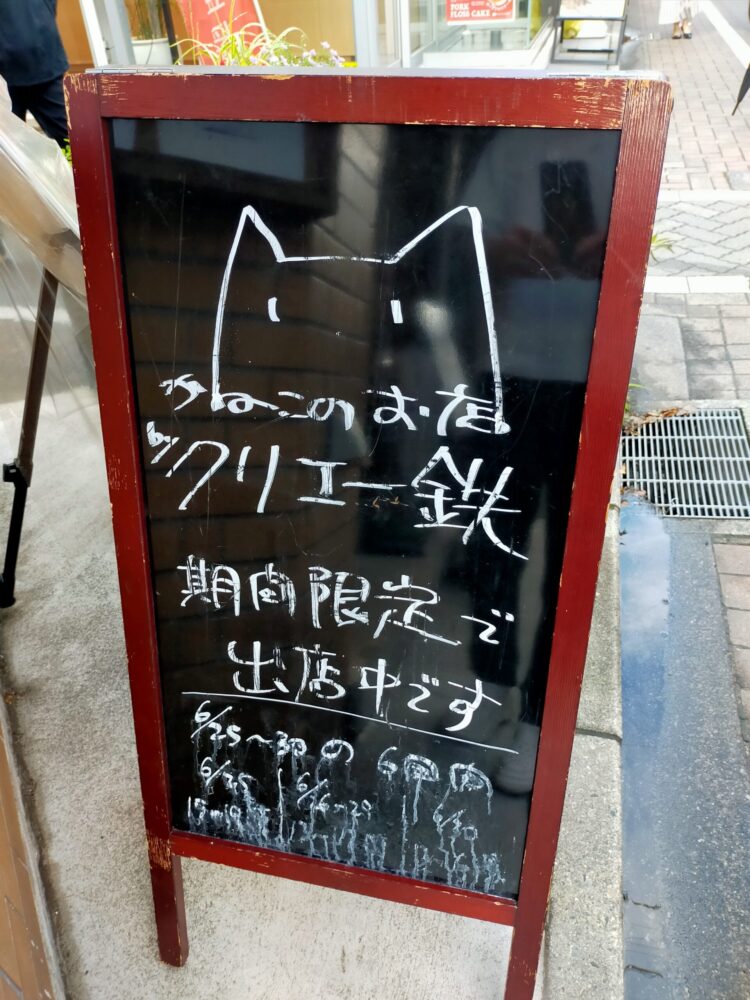 PORK
FLOSS CAKE
かねこのお店
by クリエー鉄
期間限定で
出店中です
6/25〜30の6日間
6/25 6/26〜29 6/30